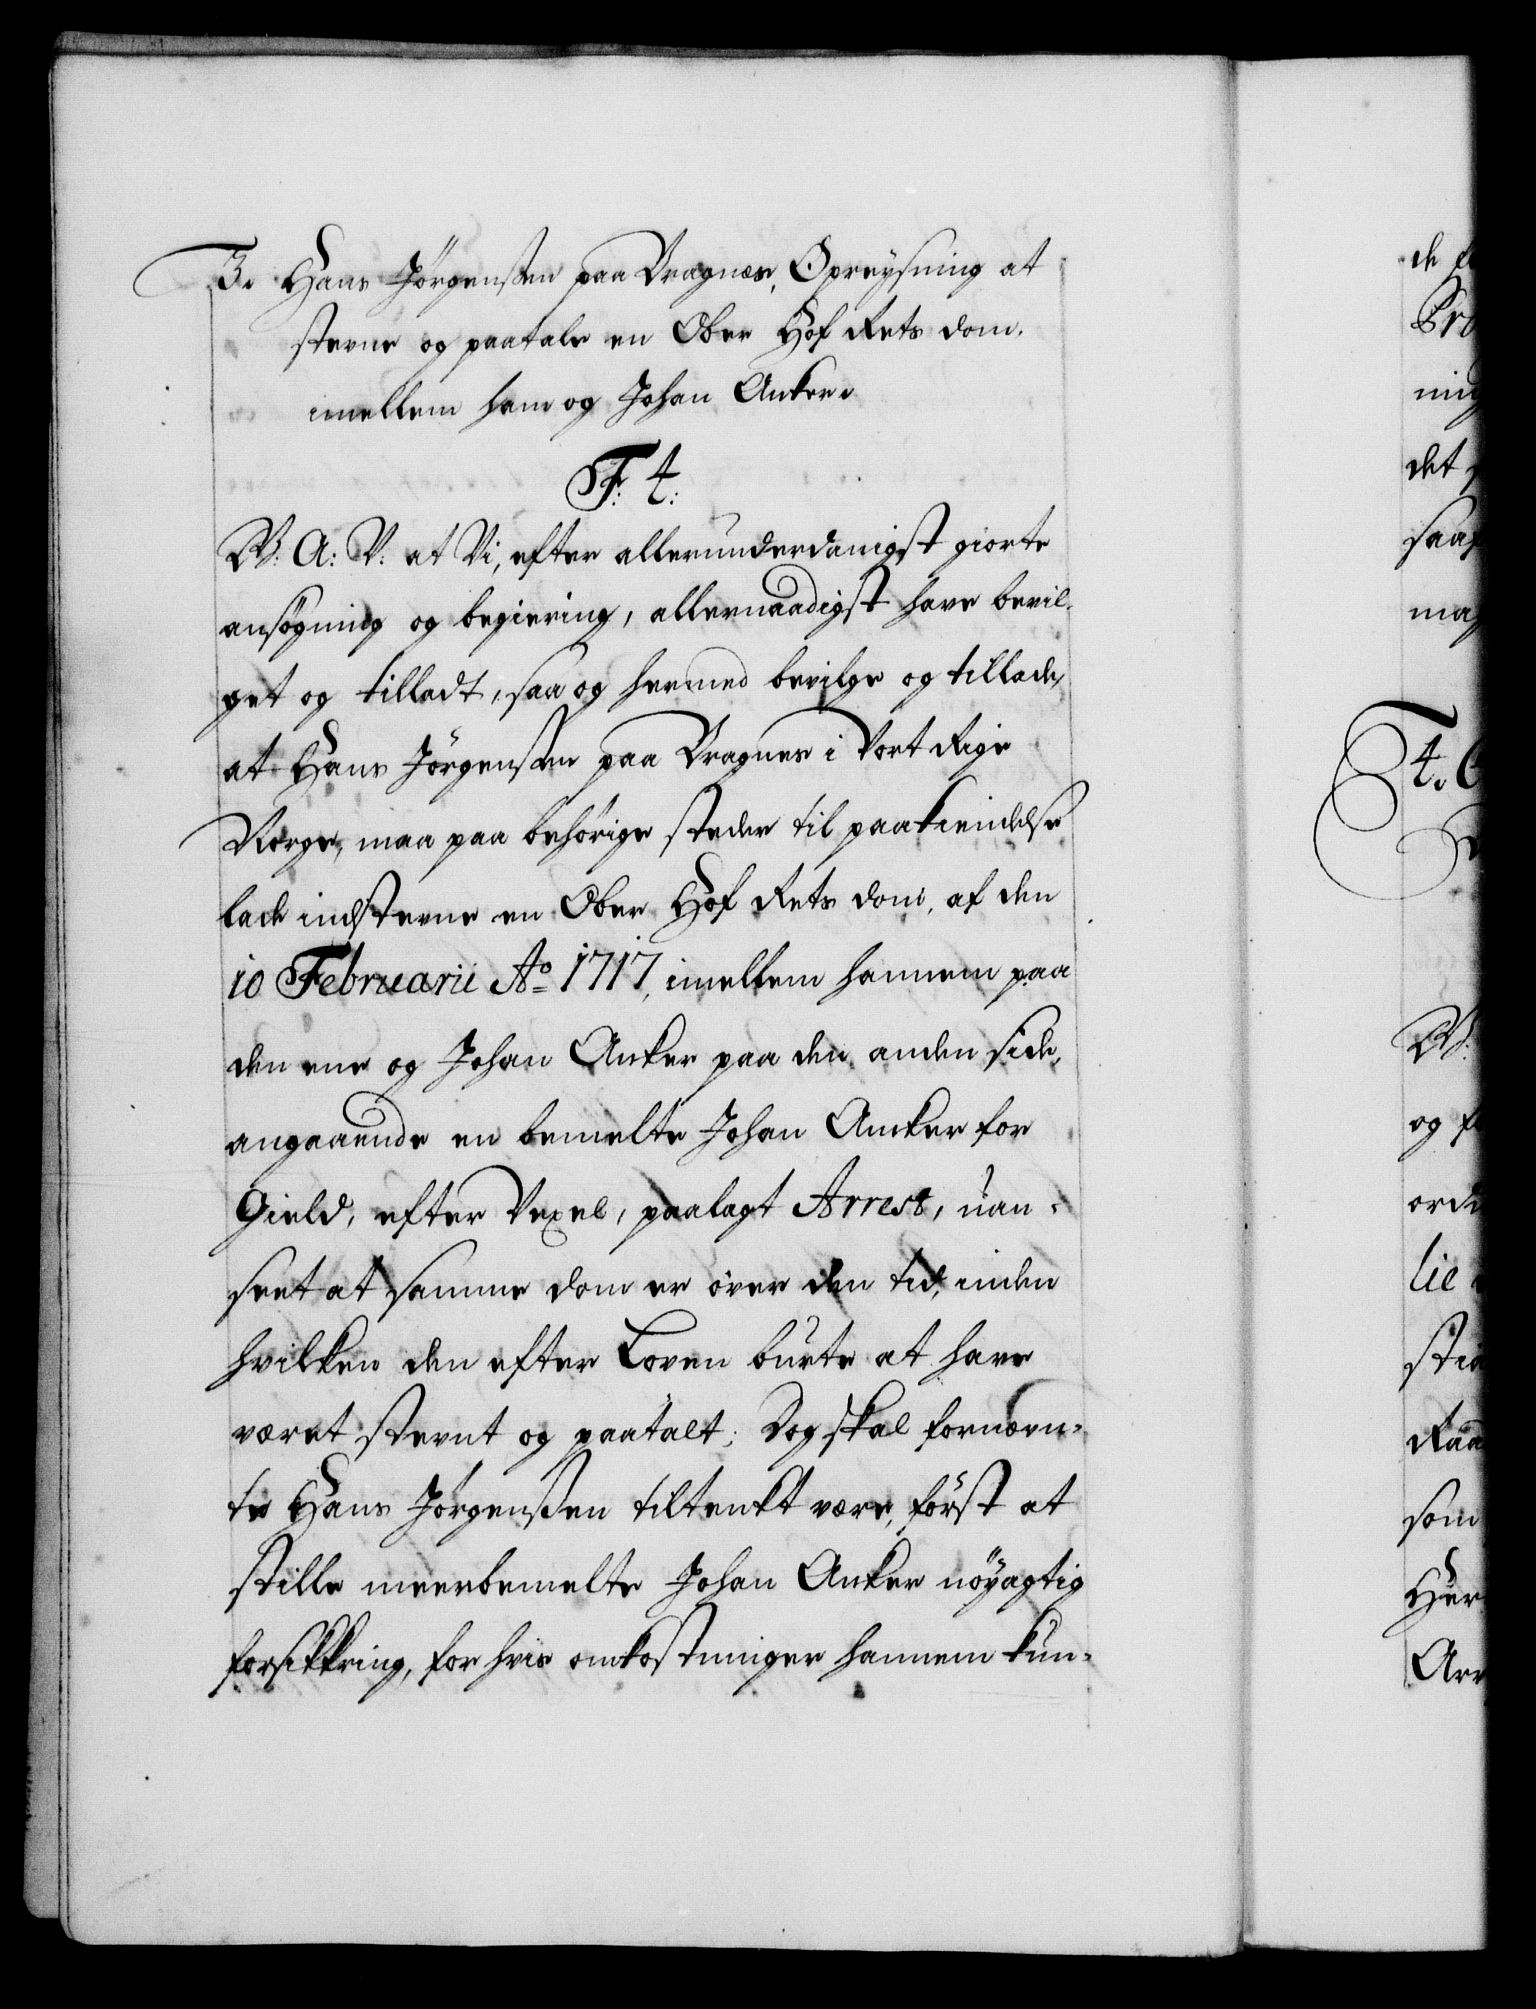 3. Hans Jörgenssen paa Bragnæs, Opreysning at
stevne og paatale en Ober Hof Rets dom,
imellem ham og Johan Anker.
F. 4.
W: A: V: at Vi, efter allerunderdanigst giorte
ansøgning og begiering, allernaadigst have bevil-
get og tilladt, saa og hermed bevilge og tillade,
at Hans Jörgenssen paa Bragnes i Vort Rige
Norge, maa paa behörige steder til paakiendelse
lade indstevne en Ober Hof Rets dom, af den
10 Februarii Ao 1717, imellem hannem paa
den ene og Johan Anker paa den anden side,
angaaende en bemelte Johan Ancker for
Gield, efter Vexel, paalagt Arrest, uan-
seet at samme dom er over den tid, inden
hvilken den efter Loven burte at have
været stevnt og paatalt; Dog skal fornævn-
te Hans Jörgenssen tiltenkt være, först at
stille meerbemelte Johan Anker nöyagtig
forsikkring, for hvis omkostninger hannem kun-
de
det
og
som